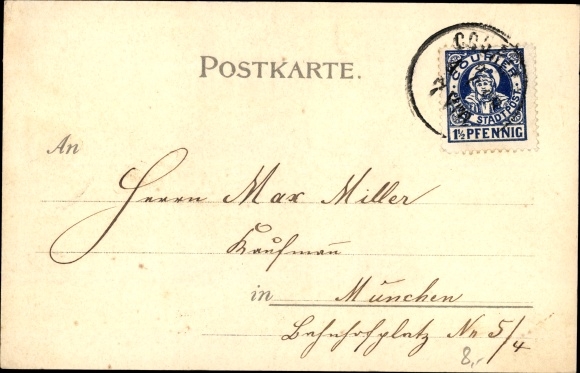 POSTKARTE.
COURIER
STADTPOST.
1½ PFENNIG
An
Herrn Max Miller
Kaufmann
in München
Bahnhofplatz No 5/4
8,-